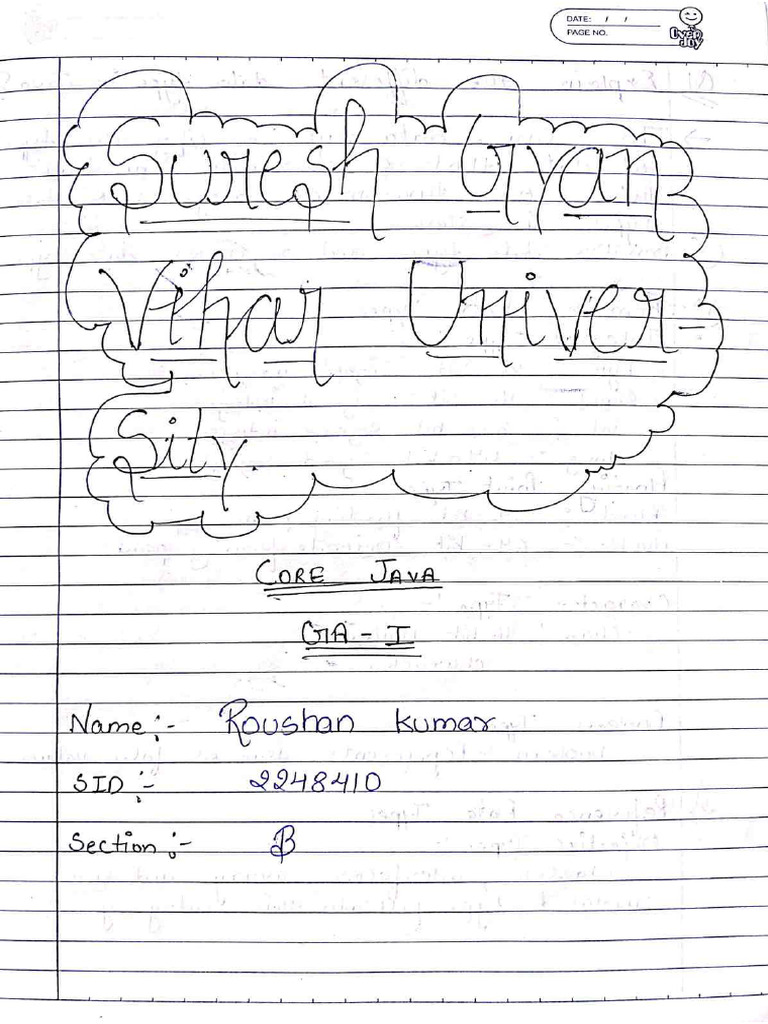 DATE: / /
PAGE NO.
Suresh Gyan
Vihar Univer-
Sity.
CORE JAVA
GA - I
Name :- Roushan Kumar
SID :- 2248410
Section :- B